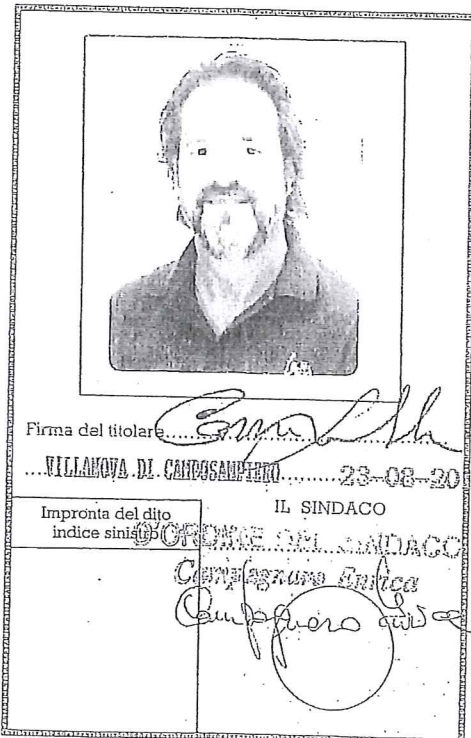 Firma del titolare
VILLANOVA DI CAMPOSAMPIERO 23-08-20
IL SINDACO
Impronta del dito
indice sinistro
D'ORDINE DEL SINDACO
Campagnaro Enrica
Campagnaro Enrica